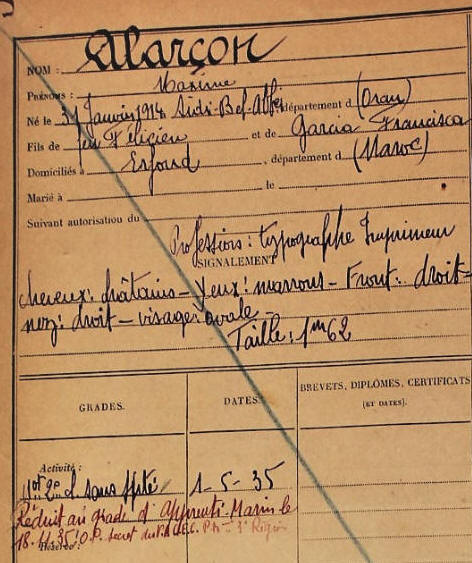 NOM : Alarçon
PRÉNOMS : Maxime
Né le 31 Janvier 1914 Sidi-Bel-Abbès, département d (Oran)
Fils de feu Félicien et de Garcia Francisca
Domiciliés à Erfoud, département d (Maroc)
Marié à le
Suivant autorisation du
Profession : typographe Imprimeur
SIGNALEMENT
cheveux : châtains – Yeux : marrons – Front : droit –
nez : droit – visage : ovale
Taille : 1m62
GRADES.
DATES
BREVETS, DIPLÔMES, CERTIFICATS
(ET DATES).
Activité :
Mot 2e cl sans spté 1-5-35
Réduit au grade d'Apprenti-Marin le
18.11.35 O.P. Secret du 3e Région
Réserve :